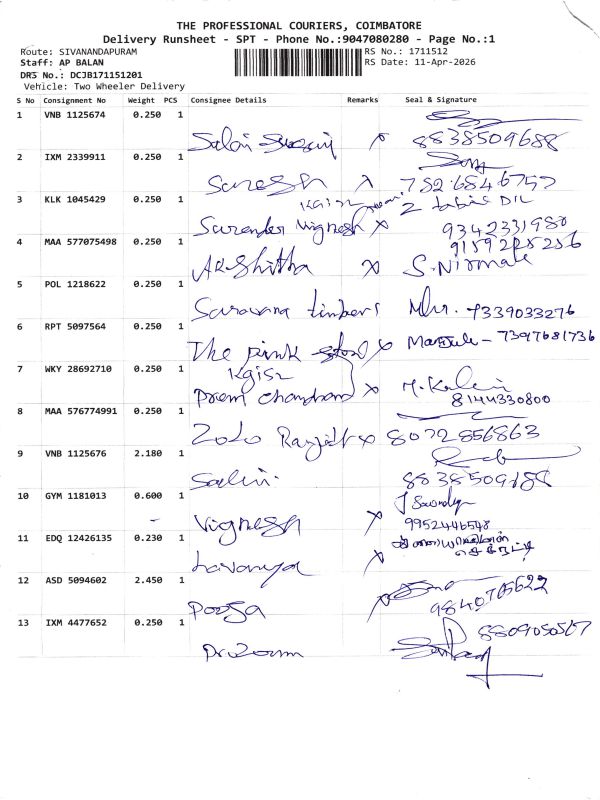 THE PROFESSIONAL COURIERS, COIMBATORE
Delivery Runsheet - SPT - Phone No.:9047080280 - Page No.:1
Route: SIVANANDAPURAM
RS No.: 1711512
Staff: AP BALAN
RS Date: 11-Apr-2026
DRS No.: DCJB171151201
Vehicle: Two Wheeler Delivery
S No Consignment No Weight PCS Consignee Details Remarks Seal & Signature
1 VNB 1125674 0.250 1
8838509688
2 IXM 2339911 0.250 1
Suresh x
3 KLK 1045429 0.250 1
Kgisl
Surender Vignesh x 9342331980
4 MAA 577075498 0.250 1
Akshitha x S. Nirmala
5 POL 1218622 0.250 1
Saravana timbers 7339033276
6 RPT 5097564 0.250 1
The pink x 7397681736
7 WKY 28692710 0.250 1
Kgisl
Prem x
8144330800
8 MAA 576774991 0.250 1
Zolo x 8072856863
9 VNB 1125676 2.180 1
10 GYM 1181013 0.600 1
Vignesh x
9952446548
11 EDQ 12426135 0.230 1
Lavanya x
12 ASD 5094602 2.450 1
Pooja x
13 IXM 4477652 0.250 1